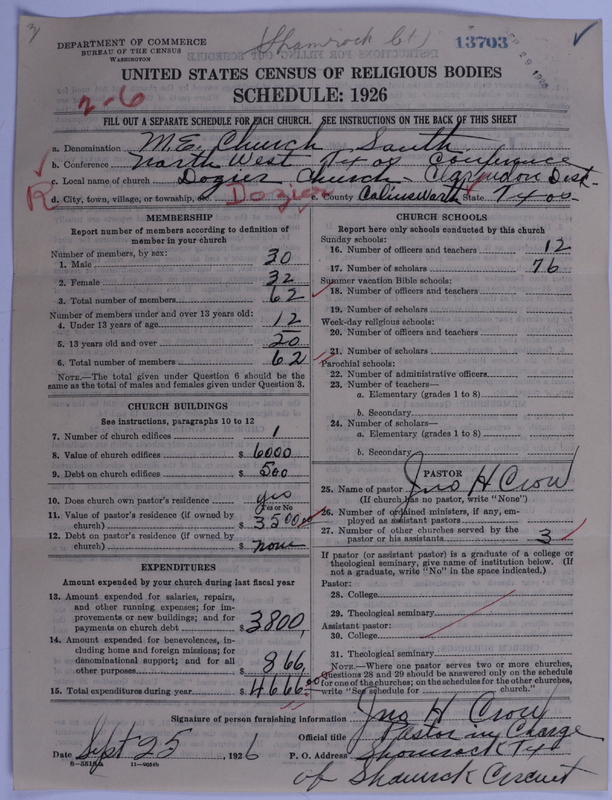 (Shamrock Ct)
13703
SEP 29 1926
DEPARTMENT OF COMMERCE
BUREAU OF THE CENSUS
WASHINGTON
UNITED STATES CENSUS OF RELIGIOUS BODIES
SCHEDULE: 1926
2-6
FILL OUT A SEPARATE SCHEDULE FOR EACH CHURCH. SEE INSTRUCTIONS ON THE BACK OF THIS SHEET
a. Denomination M.E. Church South
b. Conference North West Texas Conference
c. Local name of church Dozier Church - Clarendon Dist.
R d. City, town, village, or township, etc. Dozier e. County State Texas
MEMBERSHIP
Report number of members according to definition of
member in your church
Number of members, by sex:
1. Male 30
2. Female 32
3. Total number of members 62
Number of members under and over 13 years old:
4. Under 13 years of age 12
5. 13 years old and over 50
6. Total number of members 62
NOTE.—The total given under Question 6 should be the
same as the total of males and females given under Question 3.
CHURCH BUILDINGS
See instructions, paragraphs 10 to 12
7. Number of church edifices 1
8. Value of church edifices $ 6000
9. Debt on church edifices $ 500
10. Does church own pastor's residence yes
(Yes or No)
11. Value of pastor's residence (if owned by
church) $ 3500 00
12. Debt on pastor's residence (if owned by
church) $ none
EXPENDITURES
Amount expended by your church during last fiscal year
13. Amount expended for salaries, repairs,
and other running expenses; for im-
provements or new buildings; and for
payments on church debt $ 3800,
14. Amount expended for benevolences, in-
cluding home and foreign missions; for
denominational support; and for all
other purposes $ 866,
15. Total expenditures during year $ 4666.00
CHURCH SCHOOLS
Report here only schools conducted by this church
Sunday schools:
16. Number of officers and teachers 12
17. Number of scholars 76
Summer vacation Bible schools:
18. Number of officers and teachers
19. Number of scholars
Week-day religious schools:
20. Number of officers and teachers
21. Number of scholars
Parochial schools:
22. Number of administrative officers
23. Number of teachers—
a. Elementary (grades 1 to 8)
b. Secondary
24. Number of scholars—
a. Elementary (grades 1 to 8)
b. Secondary
PASTOR
25. Name of pastor Jno H Crow
(If church has no pastor, write "None")
26. Number of ordained ministers, if any, em-
ployed as assistant pastors
27. Number of other churches served by the
pastor or his assistants 3
If pastor (or assistant pastor) is a graduate of a college or
theological seminary, give name of institution below. (If
not a graduate, write "No" in the space indicated.)
Pastor:
28. College
29. Theological seminary
Assistant pastor:
30. College
31. Theological seminary
NOTE.—Where one pastor serves two or more churches,
Questions 28 and 29 should be answered only on the schedule
for one of the churches; on the schedules for the other churches,
write "See schedule for church."
Signature of person furnishing information Jno H Crow
Official title Pastor in Charge
Date Sept 25, 1926 P. O. Address Shamrock Tx
of Shamrock Circuit